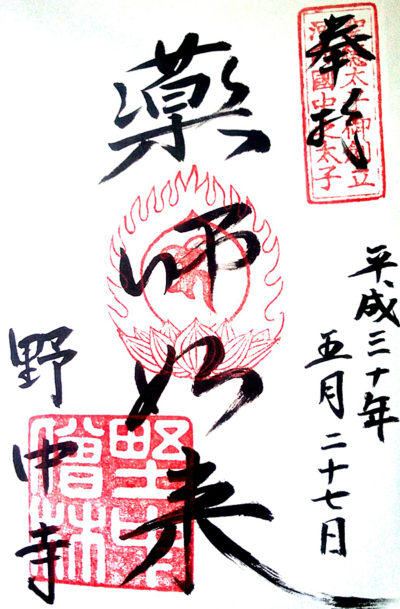 奉拝
聖徳太子御創立
河内國中之太子
平成三十年
五月二十七日
薬師如来
野中寺
野中
僧林